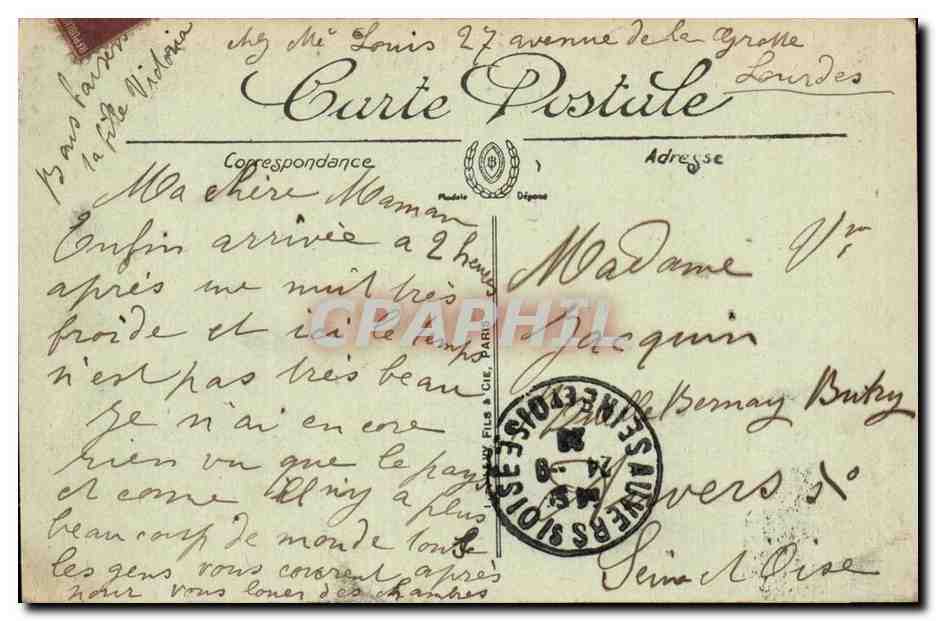 chez Me Louis 27 avenue de la Grotte
Lourdes
Bons baisers
la fille Victoria
Carte Postale
Correspondance
Adresse
Modèle Déposé
Ma chère Maman
Enfin arrivée a 2 heures
après une nuit très
froide et ici le temps
n'est pas très beau
je n'ai encore
rien vu que le pays
et come il n'y a plus
beaucoup de monde tous
les gens vous courent après
pour vous louer des chambres
FILS & CIE, PARIS
CPAPHIL
Madame Vve
Jacquin
Bernay Butry
Auvers s/o
Seine et Oise
AUVERS S/ OISE SEINE ET OISE
24 -9
28